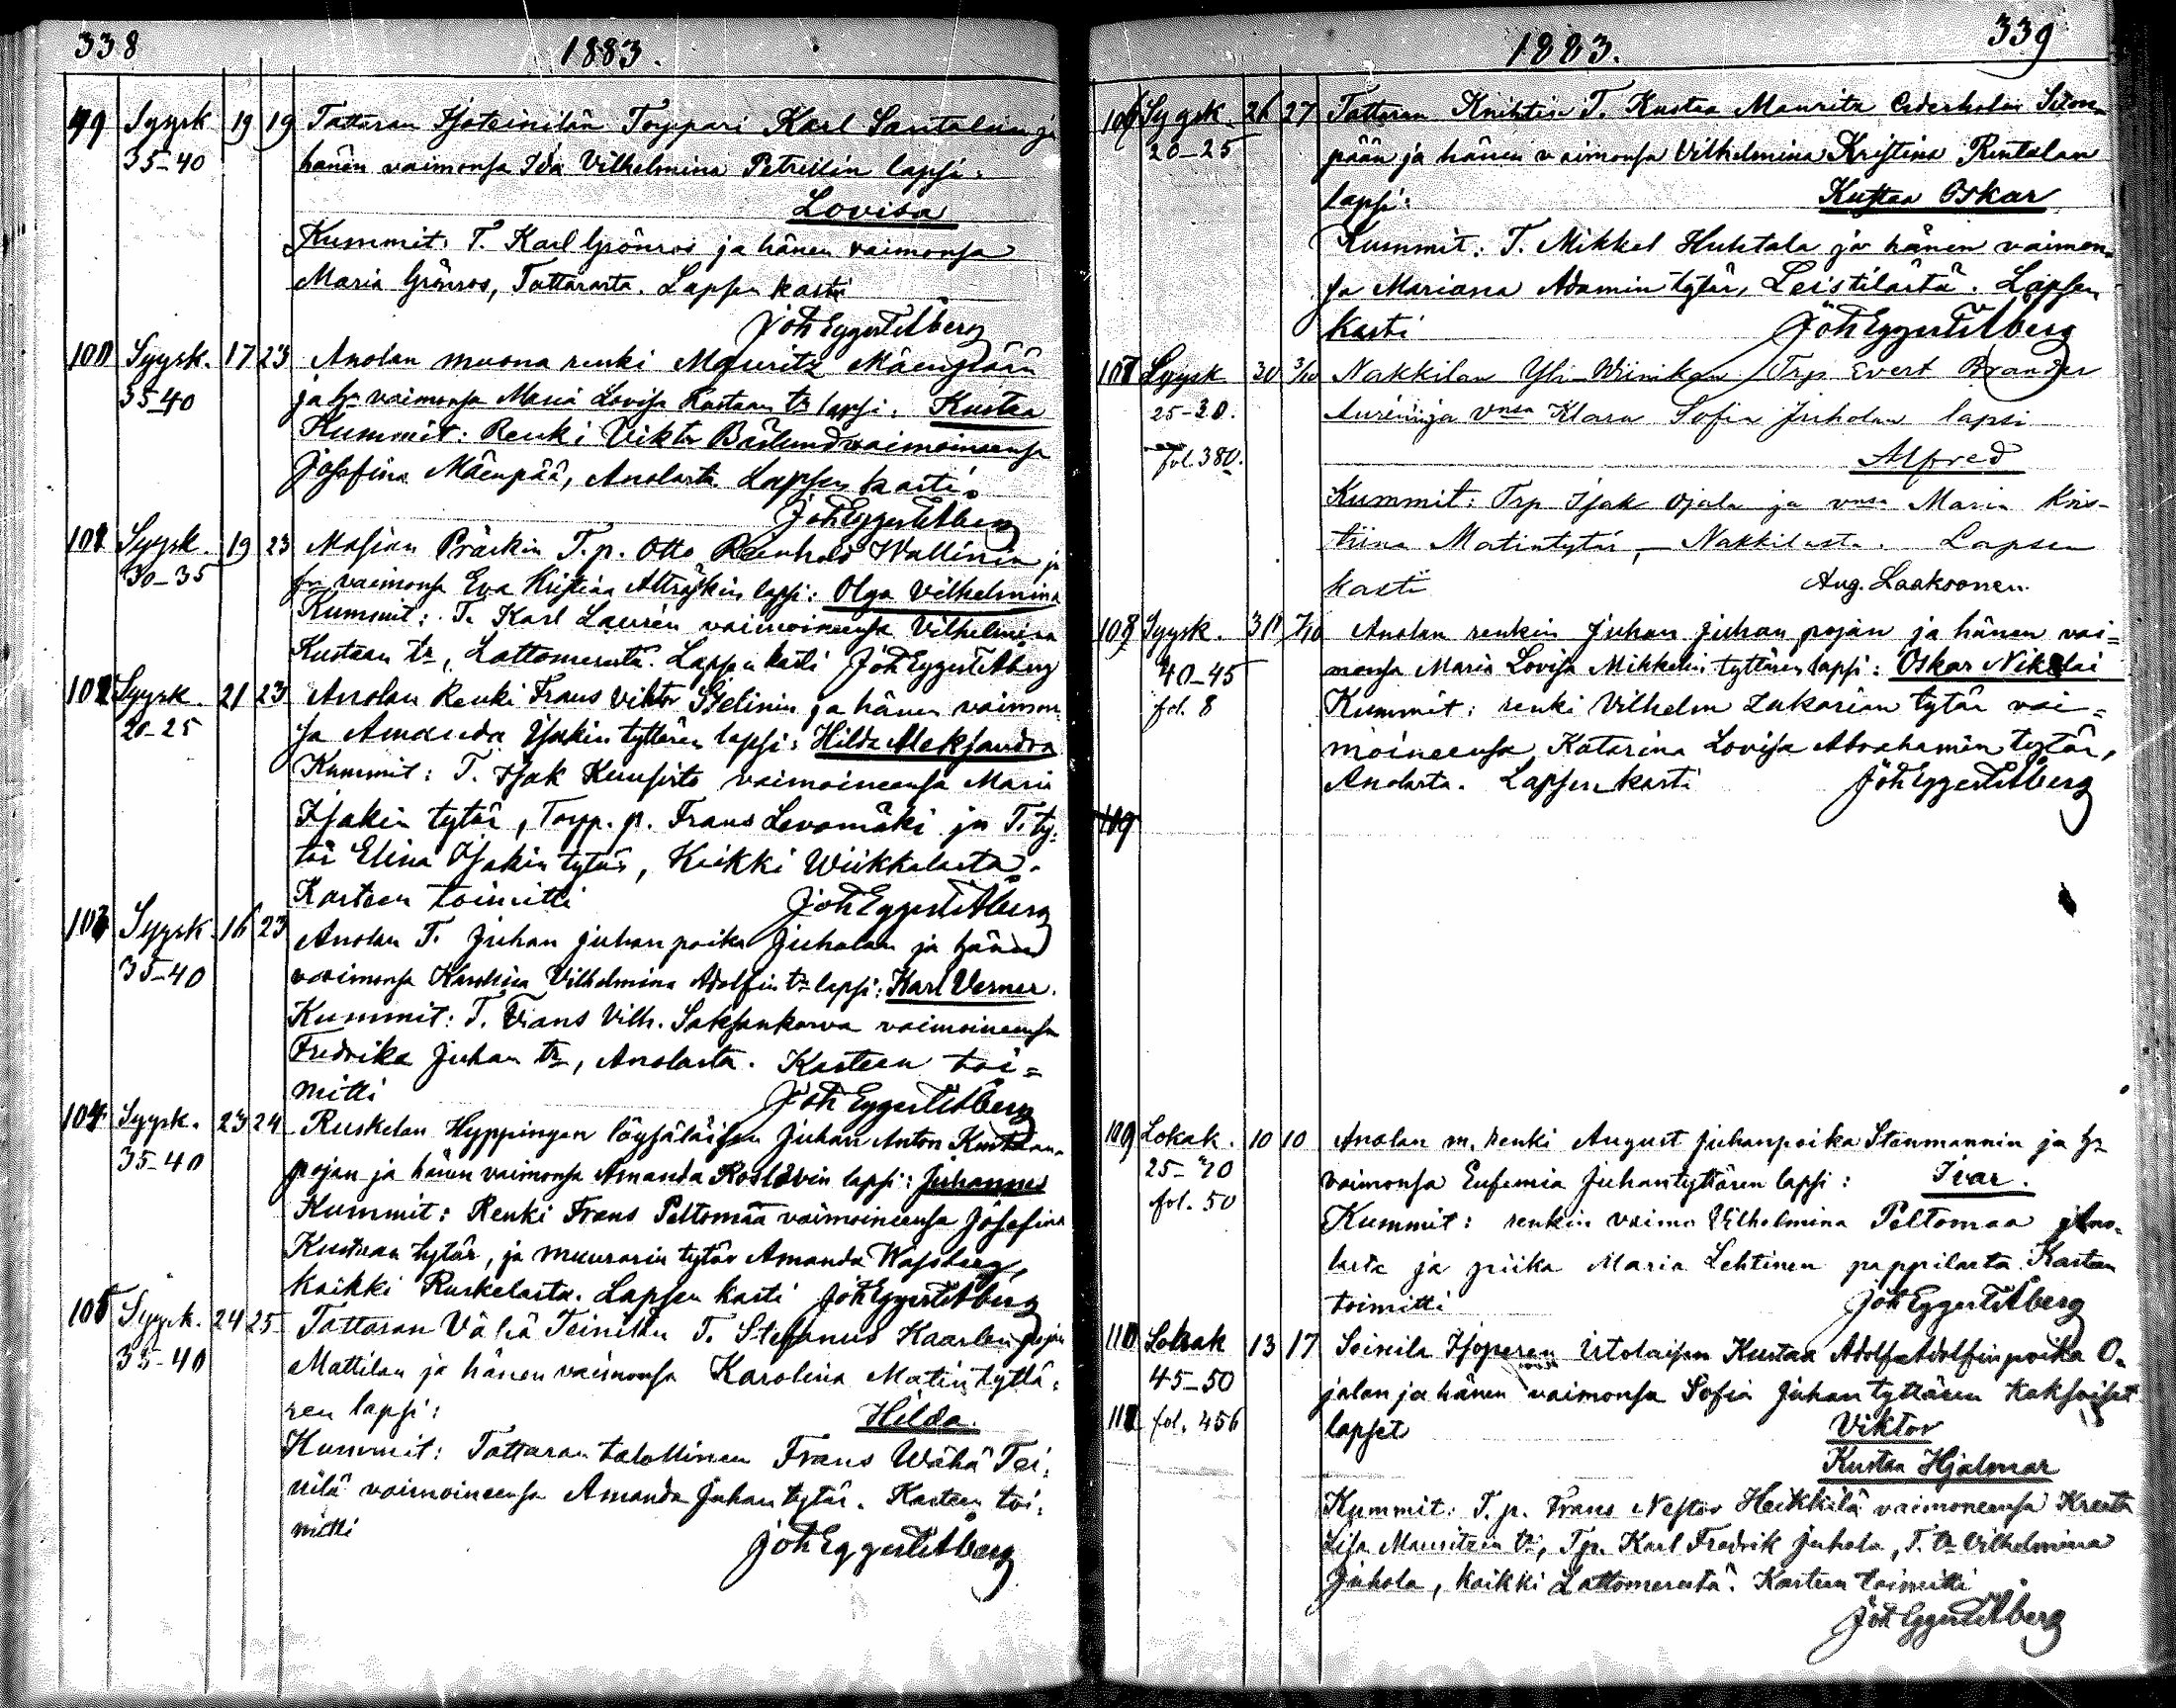 338
1883.
99 Syysk 19 19 Tattaran Isoteinilän Torppari Karl Santalan ja
35-40 hänen vaimonsa Ida Vilhelmina Petrellin lapsi.
Lovisa
Kummit: T. Karl Grönros ja hänen vaimonsa
Maria Grönros, Tattarasta. Lapsen kasti
Joh Eggert Åberg
100 Syysk. 17 23 Anolan muona renki Mauritz Mäenpään
35-40 ja hn vaimonsa Maria Lovisa Kustaan tr lapsi. Kustaa
Kummit: Renki Viktor Bärlund vaimoineensa
Josefina Mäenpää, Anolasta Lapsen kasti
Joh Eggert Åberg
101 Syysk. 19 23 Masian Präskin T.p. Otto Reinhold Wallinin ja
30-35 hn vaimonsa Eva Kristina lapsi: Olga Vilhelmina
Kummit: T. Karl Laurén vaimoineensa Vilhelmina
Kustaan tr, Lattomerestä. Lapsen kasti Joh Eggert Åberg
102 Syysk. 21 23 Anolan Renki Frans Viktor ja hänen vaimon-
20-25 sa Amanda Isakin tyttären lapsi: Hilda Aleksandra
Kummit: T. Isak Kuusisto vaimoineensa Maria
Isakin tytär, Torp. p. Frans Levomäki ja T. ty-
tär Elina Isakin tytär, Kaikki Wiikkalasta.
Kasteen toimitti Joh Eggert Åberg
103 Syysk. 16 23 Anolan T. Juhan Juhanpoika Juholan ja hänen
35-40 vaimonsa Karolina Vilhelmina Adolfin tr lapsi: Karl Verner.
Kummit: T. Frans Vilh. Saksankorva vaimoineensa
Fredrika Juhan tr, Anolasta. Kasteen toi=
mitti Joh Eggert Åberg
104 Syysk. 23 24 Ruskelan Hyppingen löysäläisen Juhan Anton Kustaan-
35-40 pojan ja hänen vaimonsa Amanda Koslovin lapsi: Juhannes
Kummit: Renki Frans Peltomaa vaimoineensa Josefina
Kustaan tytär, ja muurarin tytär Amanda Wassberg,
kaikki Ruskelasta. Lapsen kasti Joh Eggert Åberg
105 Syysk. 24 25 Tattaran Vähä Teinilän T. Stefanus Kaarlen pojan
35-40 Mattilan ja hänen vaimonsa Karolina Matin tyttä-
ren lapsi: Hilda.
Kummit: Tattaran talollinen Frans Wähä Tei-
nilä vaimoineensa Amanda Juhan tytär. Kasteen toi-
mitti Joh Eggert Åberg
339
1883.
106 Syysk. 26 27 Tattaran Knihtin T. Kustaa Mauritz Cederholm
20-25 pään ja hänen vaimonsa Vilhelmina Kristina Rintalan
lapsi: Kustaa Oskar
Kummit: T. Mikkel Huhtala ja hänen vaimon-
sa Mariana Adamin tytär, Leistilästä. Lapsen
kasti Joh Eggert Åberg
107 Syysk 30 3/10 Nakkilan Yli-Wiinikan Trp. Evert Brander
25-30. Aurénin ja vnsa Klara Sofia Juholan lapsi
fol. 380. Alfred
Kummit: Trp Isak Ojala ja vnsa Maria Kris-
tiina Matintytär, Nakkilasta. Lapsen
kasti Aug. Laaksonen.
108 Syysk. 30 7/10 Anolan renkin Juhan Juhan pojan ja hänen vai=
40-45 monsa Maria Lovisa Mikkelin tyttären lapsi: Oskar Nikolai
fol. 8 Kummit: renki Vilhelm Zakarian tytär vai=
moineensa Katarina Lovisa Abrahamin tytär,
Anolasta. Lapsen kasti Joh Eggert Åberg
109
109 Lokak. 10 10 Anolan m. renki August Juhanpoika Stenmannin ja hn
25-30 vaimonsa Eufemia Juhantyttären lapsi: Ivar.
fol. 50 Kummit: renkin vaimo Vilhelmina Peltomaa Ano-
lasta ja piika Maria Lehtinen pappilasta. Kasteen
toimitti Joh Eggert Åberg
110 Lokak 13 17 Soinila Isoperen itsolaisen Kustaa Adolf Adolfinpoika O-
45-50 jalan ja hänen vaimonsa Sofia Juhan tyttären kaksoiset
111 fol. 456 lapset Viktor
Kustaa Hjalmar
Kummit: T. p. Frans Nestor Heikkilä vaimoneensa Kreeta
Lisa Mauritzin tr, Tp. Karl Fredrik Juhola, T. tr Vilhelmina
Juhola, kaikki Lattomerestä. Kasteen toimitti
Joh Eggert Åberg